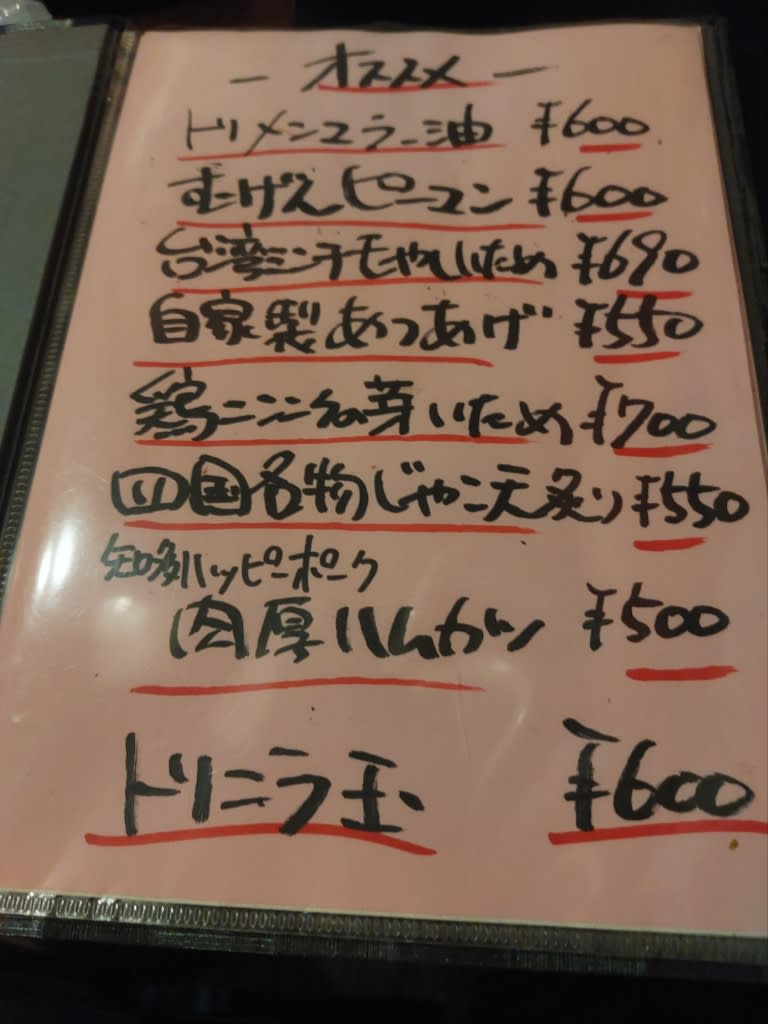 －オススメ－
トリメンマラー油 ¥600
むげんピーマン ¥600
台湾ミンチモやしいため ¥690
自家製あつあげ ¥550
鶏ニンニクの芽いため ¥700
四国名物じゃこ天炙り ¥550
知多ハッピーポーク
肉厚ハムカツ ¥500
トリニラ玉 ¥600